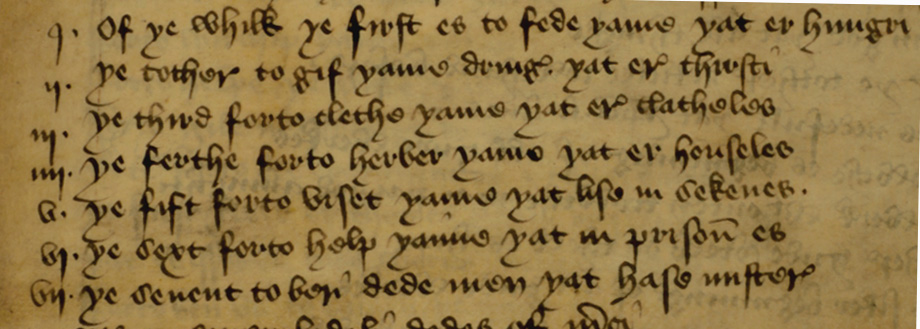 j. Of ye whilk ye first es to fede yame yat er hungri
ij. ye tother to gif yame dring. yat er thirsti
iij. ye third forto clethe yame yat er clatheles
iiij. ye ferthe forto herber yame yat er houseles
v. ye fift forto viset yame yat lise in sekenes.
vj. ye sext forto help yaime yat in prison̄ es
vij. ye seuent to beri dede men yat hase mister
dedes of m̄ci